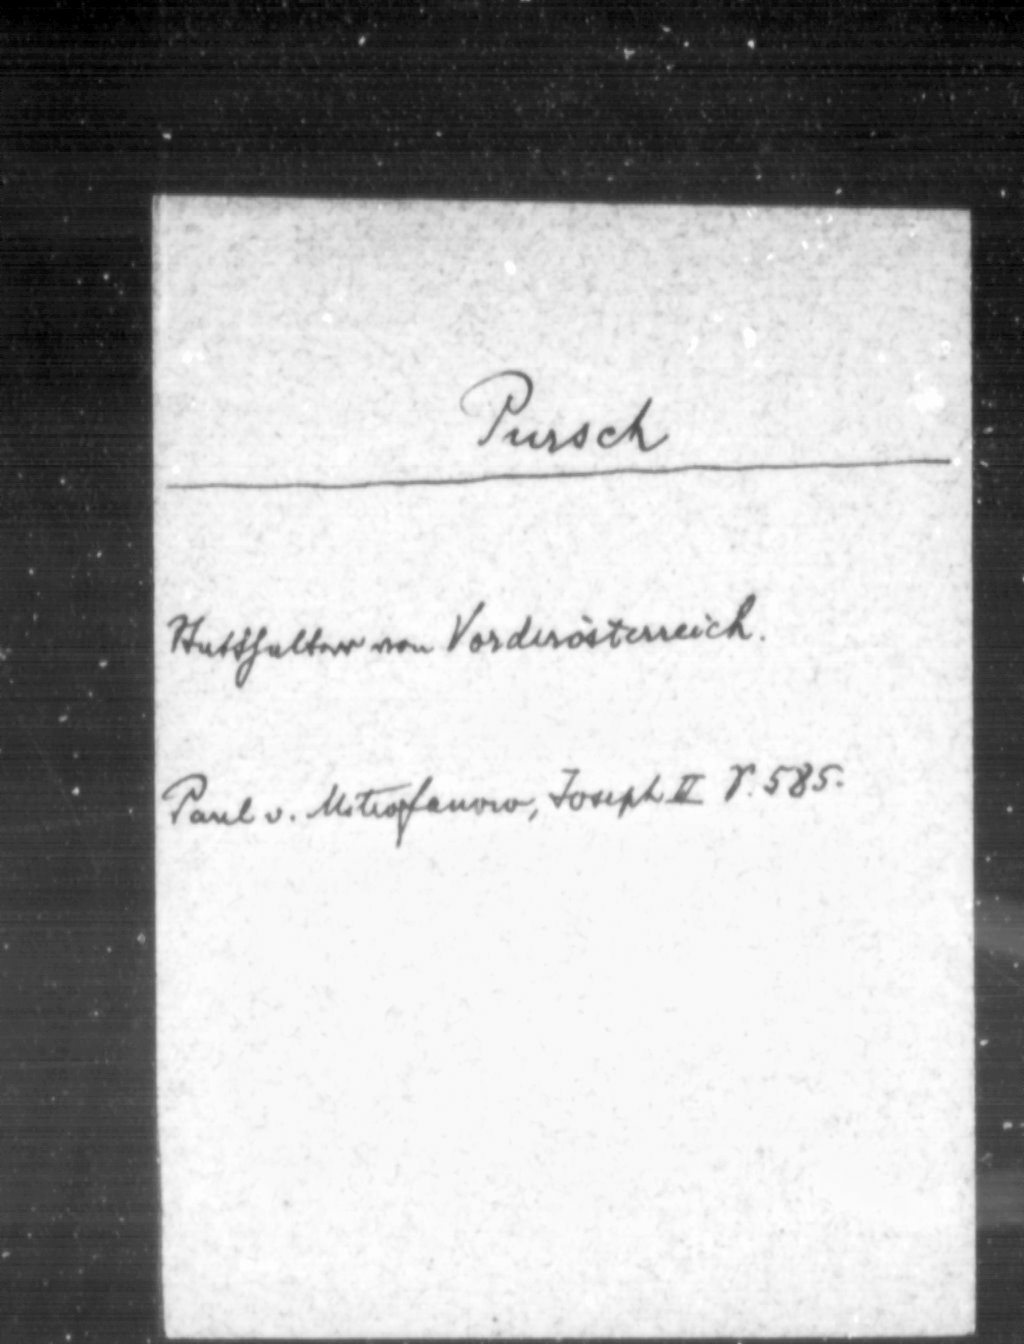 Pursch
Statthalter von Vorderösterreich.
Paul v. Mitrofanow, Joseph II S. 585.